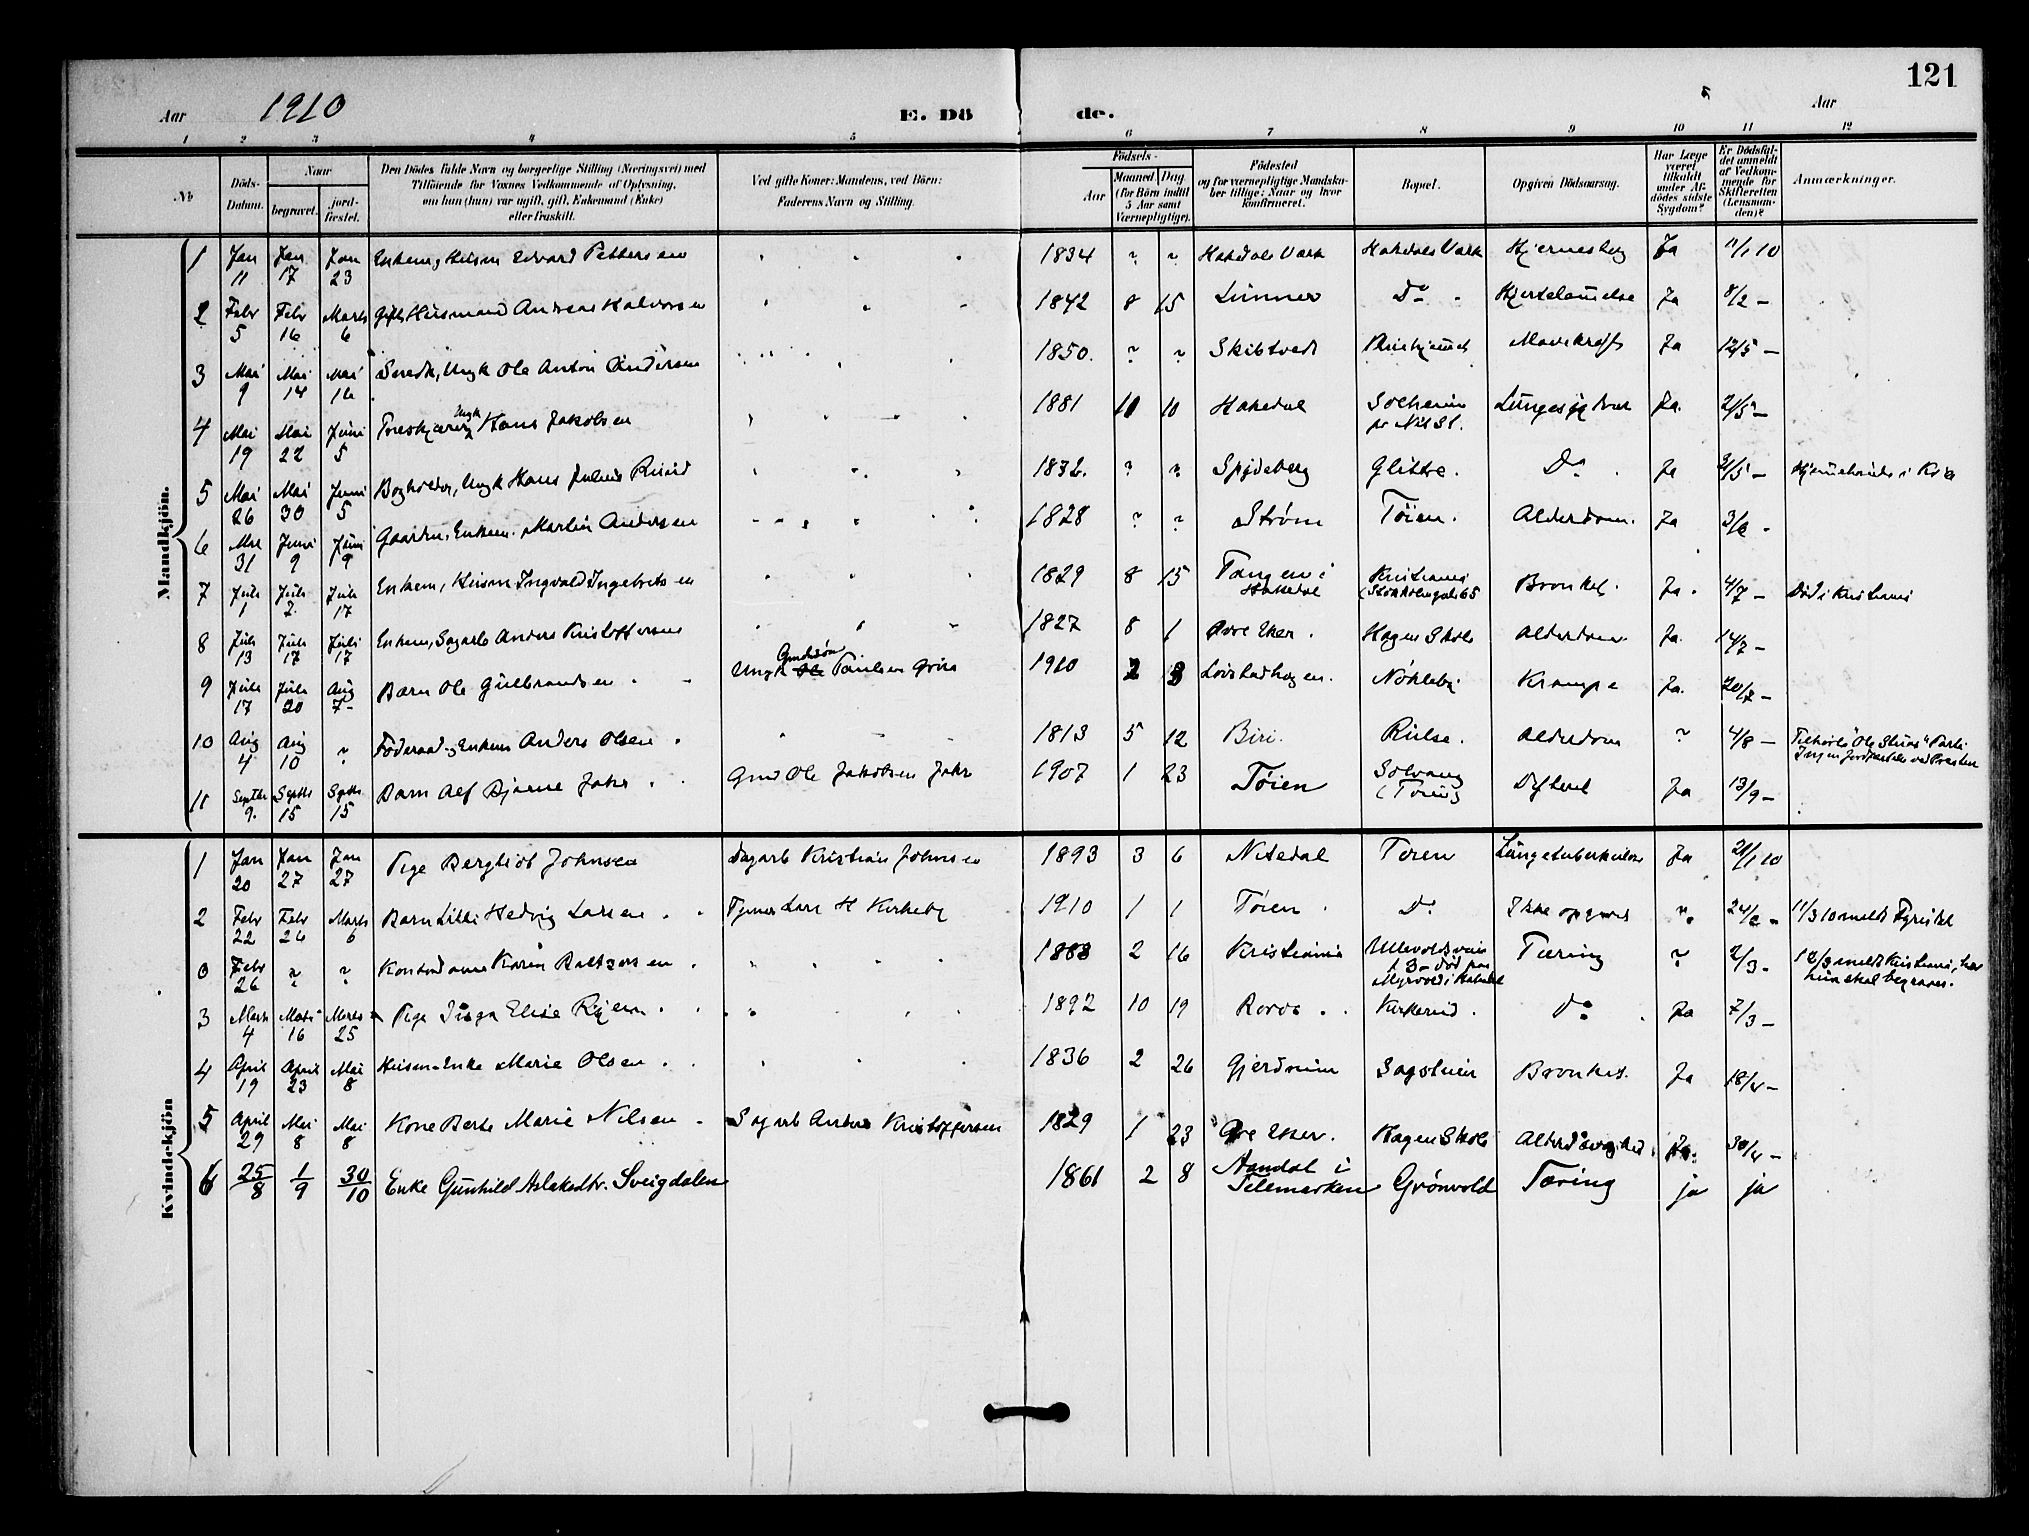 121
Aar 1910 E. Dö de. Aar
1 2 3 4 5 6 7 8 9 10 11 12
No
Döds-Datum.
Naar
begravet.
jord-fæstet.
Den Dödes fulde Navn og borgerlige Stilling (Næringsvei) med
Tilföiende for Voxnes Vedkommende af Oplysning,
om han (hun) var ugift, gift, Enkemand (Enke)
eller fraskilt.
Ved gifte Koner: Mandens, ved Börn:
Faderens Navn og Stilling.
Födsels-
Aar
Maaned Dag
(for Börn indtil
5 Aar samt
Værnepligtige).
Födested
og for værnepligtige Mandska-
ber tillige: Naar og hvor
konfirmeret.
Bopæl.
Opgiven Dödsaarsag.
Har Læge
været
tilkaldt
under Af-
dödes sidste
Sygdom?
Er Dödsfal-
det anmeldt
af Vedkom-
mende for
Skifteretten
(Lensman-
den)?
Anmærkninger.
Mandkjön.
1 Jan 11 Jan 17 Jan 23 Enkem, Husm Edvard Pettersen 1834 ? ? Hakedals Værk Hakedals Værk Hjerneslag Ja 11/1 10
2 Febr 5 Febr 16 Marts 6 Gift Husmand Andreas Halvorsen 1842 8 15 Lunner Do Hjertelammelse Ja 8/2 –
3 Mai 9 Mai 14 Mai 16 Snedk, Ungk Ole Anton Andersen 1850. ? ? Skibtvedt Mavekræft Ja 12/5 –
4 Mai 19 Mai 22 Juni 5 Ungk Hans Jakobsen 1881 11 10 Hakedal Solheim pr Nit St. Ja. 21/5 –
5 Mai 26 Mai 30 Juni 5 Bogholder, Ungk Hans Julius Ruud 1832. ? ? Spydeberg Glitre. Do Ja 31/5 –
6 Mai 31 Juni 9 Juni 19 Gaardm, Enkem. Martin Andersen 1828 ? ? Strøm Tøien. Alderdom. Ja 3/6 –
7 Juli 1 Juli 2 Juli 17 Enkem, Husm Ingvald Ingebretsen 1829 8 15 Tangen i Hakedal Kristiania (Stokholmgade 65 Bronkit. Ja. 4/7 – Død i Kristiania
8 Juli 13 Juli 17 Juli 17 Enkem, Sagarb Anders Kristoffersen 1827 8 1 Øvre Eker. Hagen Skole Alderdom Ja. 14/7 –
9 Juli 17 Juli 20 Aug 7 Barn Ole Gulbrandsen Ungk Ole Paulsen 1910 2 3 Løvstadhagen. Krampe Ja. 20/7 –
10 Aug 4 Aug 10 ? Føderaad, Enkem Anders Olsen 1813 5 12 Biri. Alderdom ? 4/8 –
11 Septbr 9. Septbr 15 Septbr 15 Barn Alf Bjarne Jahr Gmd Ole Jakobsen Jahr 1907 1 23 Tøien Solvang (Tøien) Difterit Ja 13/9 –
Kvindekjön
1 Jan 20 Jan 27 Jan 27 Pige Bergliot Johnsen Dagarb Kristian Johnsen 1893 3 6 Nitedal Tøien Lungetuberkulose Ja 21/1 10
2 Febr 22 Febr 26 Marts 6 Barn Lilli Hedvig Larsen Lars H Kirkeby 1910 1 1 Tøien Do Ikke opgivet ? 24/2 –
0 Febr 26 ? ? Kontordame Karin Baltzersen 1883 2 16 Kristiania Ullevoldsveien 13 – død paa Myrvold i Hakedal Tæring ? 2/3 – 12/3 meldt Kristiania, hvor hun skal begraves.
3 Marts 4 Marts 16 Marts 25 Pige Inga Elise 1892 10 19 Røros Kirkerud. Do Ja 7/3 –
4 April 19 April 23 Mai 8 Husm-Enke Marie Olsen 1836 2 26 Gjerdrum Sagstuen Bronkit. Ja 18/4 –
5 April 29 Mai 8 Mai 8 Kone Berte Marie Nilsen Sagarb Anders Kristoffersen 1829 1 23 Øvre Eker. Hagen Skole Alderdomssvaghed Ja. 30/4 –
6 25/8 1/9 30/10 Enke Gunhild Aslaksdtr. Sveigdalen 1861 2 8 Aamdal i Telemarken Grønvold Tæring ja ja